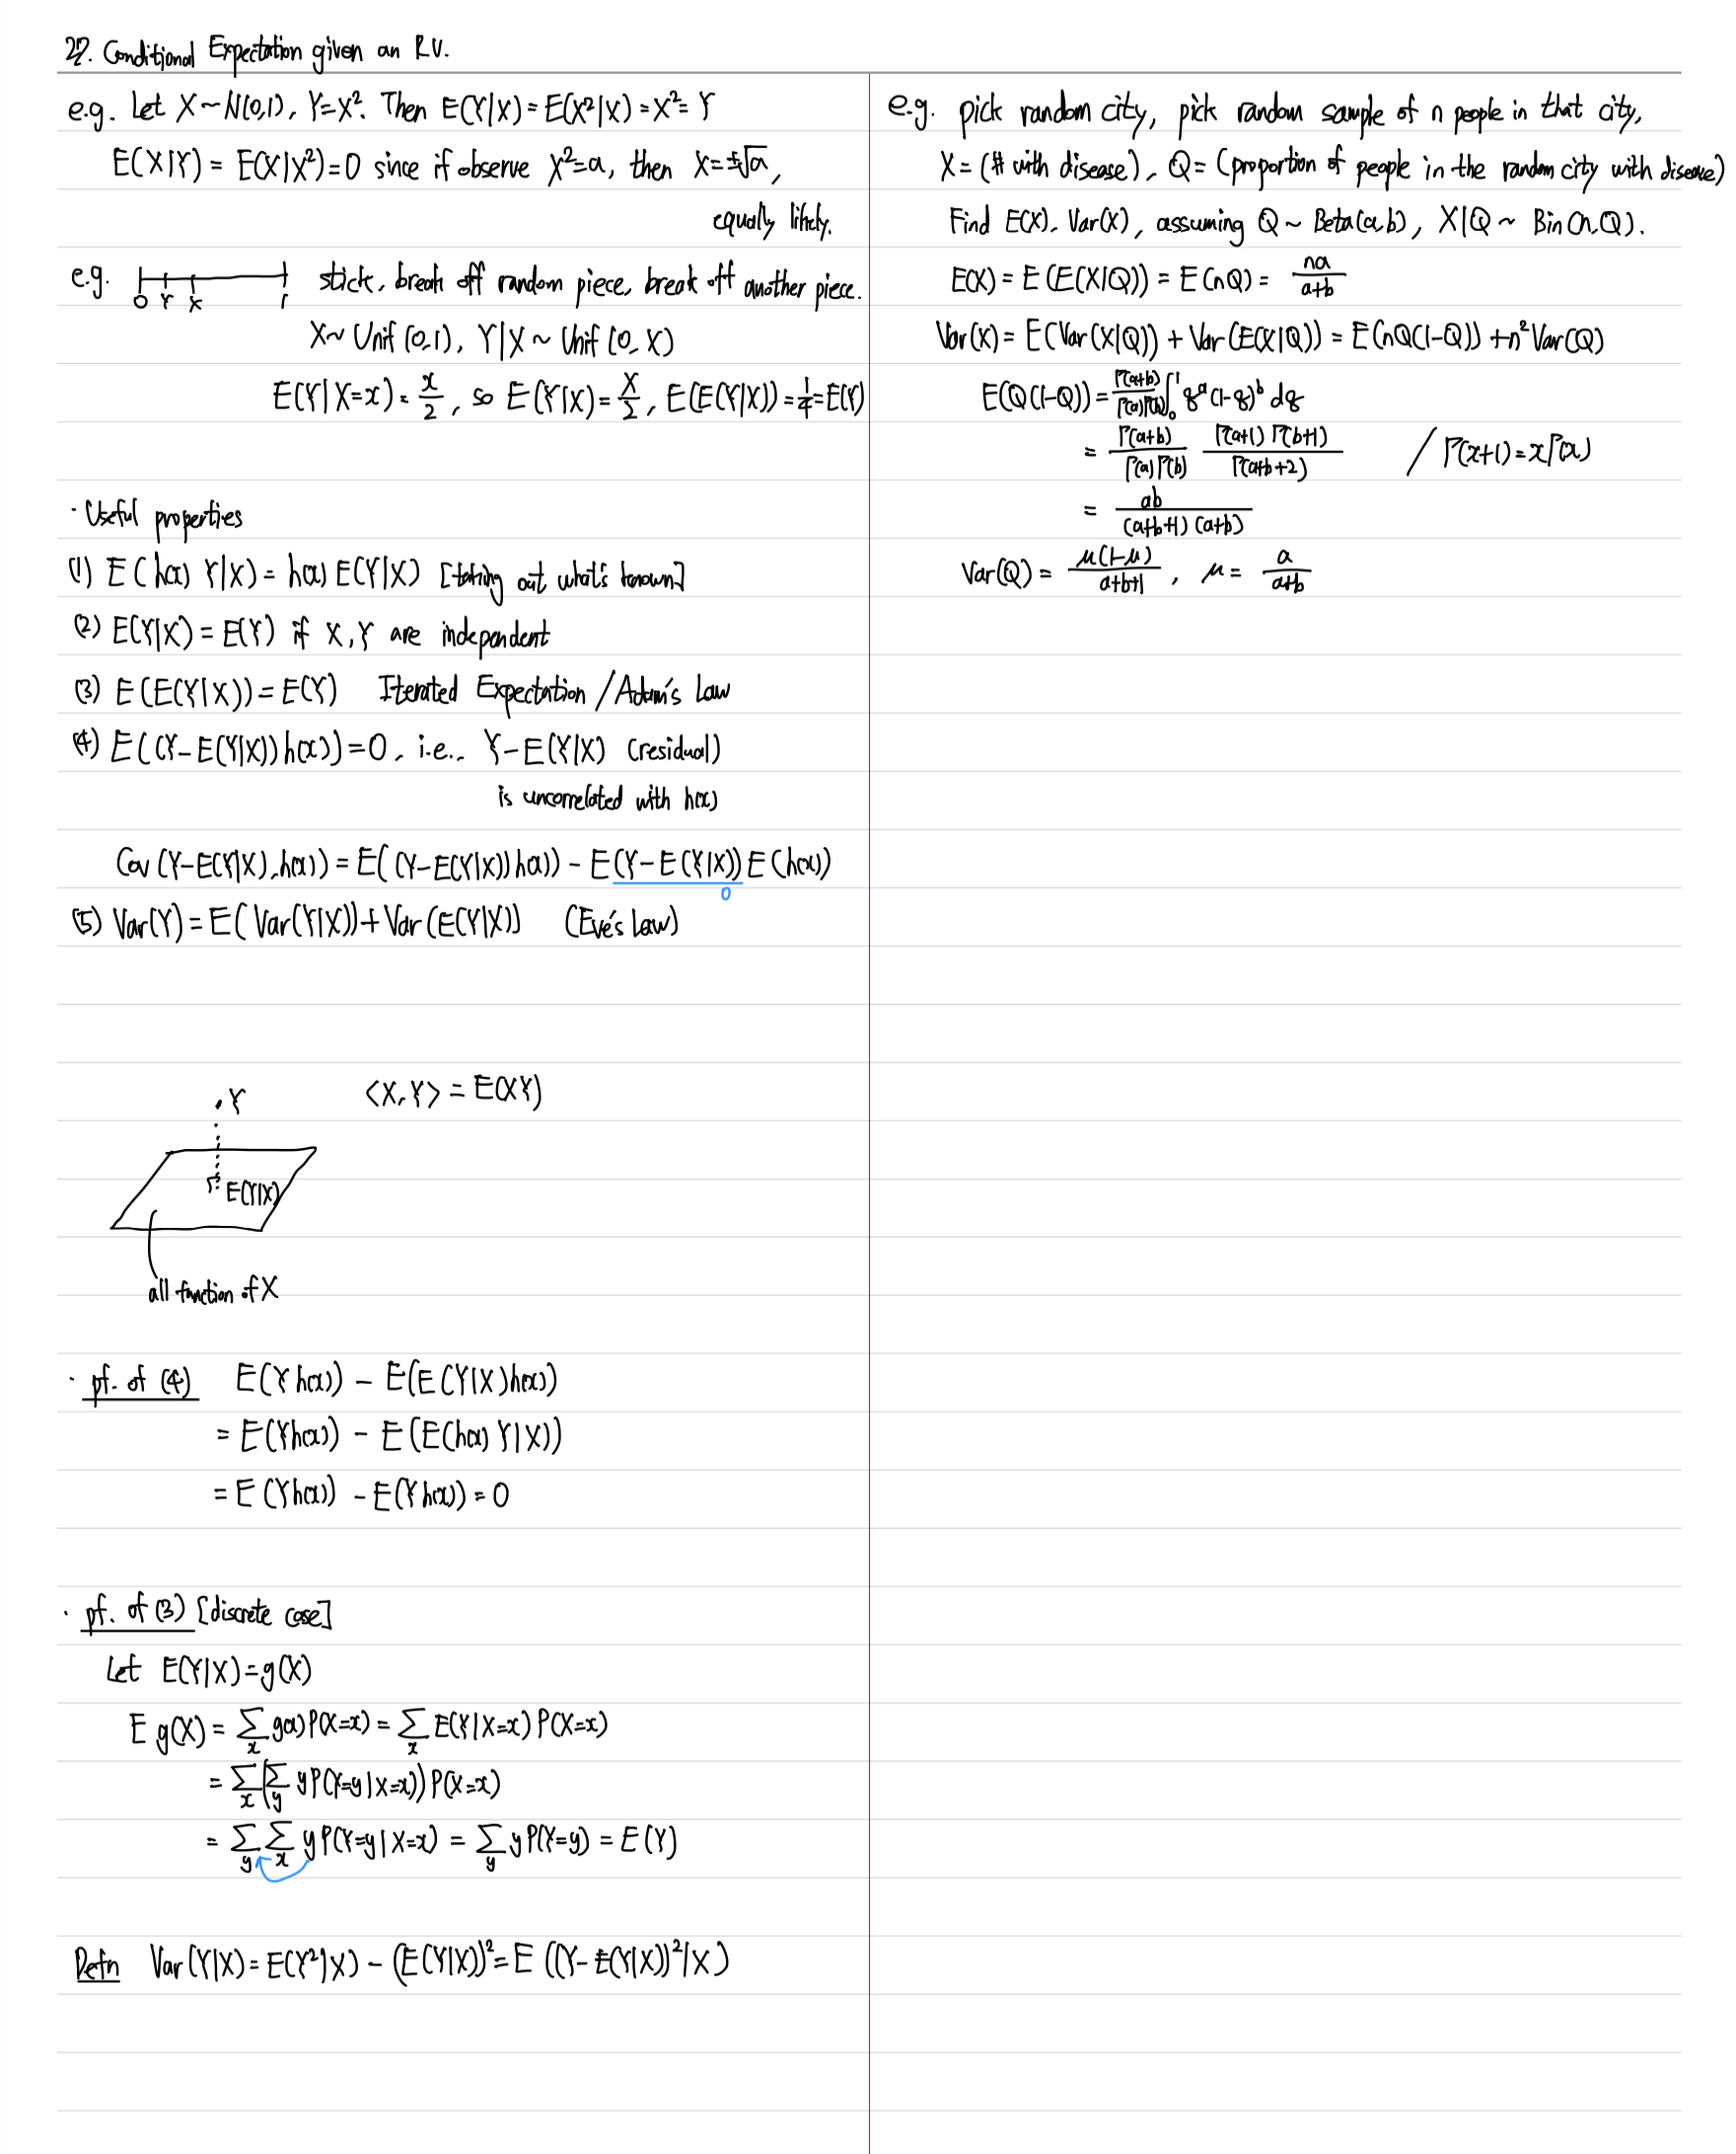 27. Conditional Expectation given an R.V.
e.g. Let X ~ N(0,1), Y=X². Then E(Y|X) = E(X²|X) = X² = Y
E(X|Y) = E(X|X²) = 0 since if observe X²=a, then X=±√a,
equally likely.
e.g. 0 Y X 1 stick, break off random piece, break off another piece.
X ~ Unif(0,1), Y|X ~ Unif(0,X)
E(Y|X=x) = x/2, so E(Y|X) = X/2, E(E(Y|X)) = 1/4 = E(Y)
· Useful properties
(1) E(h(x) Y|X) = h(x) E(Y|X) [taking out what's known]
(2) E(Y|X) = E(Y) if X,Y are independent
(3) E(E(Y|X)) = E(Y) Iterated Expectation / Adam's Law
(4) E((Y-E(Y|X))h(x)) = 0, i.e., Y-E(Y|X) (residual)
is uncorrelated with h(x)
Cov(Y-E(Y|X), h(x)) = E((Y-E(Y|X))h(x)) - E(Y-E(Y|X)) E(h(x))
0
(5) Var(Y) = E(Var(Y|X)) + Var(E(Y|X)) (Eve's Law)
·Y <X,Y> = E(XY)
E(Y|X)
all function of X
· pf. of (4) E(Y h(x)) - E(E(Y|X)h(x))
= E(Yh(x)) - E(E(h(x) Y|X))
= E(Yh(x)) - E(Y h(x)) = 0
· pf. of (3) [discrete case]
Let E(Y|X) = g(X)
E g(X) = Σ_x g(x) P(X=x) = Σ_x E(Y|X=x) P(X=x)
= Σ_x (Σ_y y P(Y=y|X=x)) P(X=x)
= Σ_y Σ_x y P(Y=y|X=x) = Σ_y y P(Y=y) = E(Y)
Defn Var(Y|X) = E(Y²|X) - (E(Y|X))² = E((Y-E(Y|X))²|X)
e.g. pick random city, pick random sample of n people in that city,
X = (# with disease), Q = (proportion of people in the random city with disease)
Find E(X), Var(X), assuming Q ~ Beta(a,b), X|Q ~ Bin(n,Q).
E(X) = E(E(X|Q)) = E(nQ) = na/(a+b)
Var(X) = E(Var(X|Q)) + Var(E(X|Q)) = E(nQ(1-Q)) + n² Var(Q)
E(Q(1-Q)) = Γ(a+b)/(Γ(a)Γ(b)) ∫₀¹ q^a (1-q)^b dq
= Γ(a+b)/(Γ(a)Γ(b)) Γ(a+1)Γ(b+1)/Γ(a+b+2) / Γ(x+1) = xΓ(x)
= ab/((a+b+1)(a+b))
Var(Q) = μ(1-μ)/(a+b+1), μ = a/(a+b)